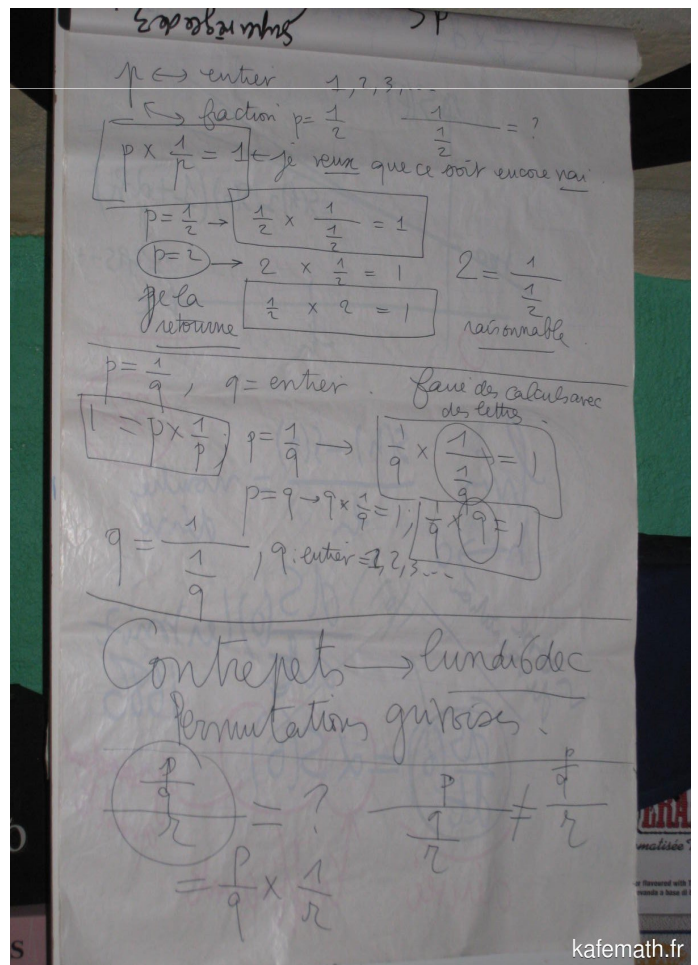 Super règle de 3
p ↔ entier 1, 2, 3, ...
↔ fraction p = 1/2 1/(1/2) = ?
p × 1/p = 1 ← je veux que ce soit encore vrai.
p = 1/2 → 1/2 × 1/(1/2) = 1
p = 2 → 2 × 1/2 = 1 2 = 1/(1/2)
je la 1/2 × 2 = 1 raisonnable
retourne
p = 1/q, q = entier. faire des calculs avec
des lettres.
1 = p × 1/p; p = 1/q → 1/q × 1/(1/q) = 1
p = q → q × 1/q = 1; 1/q × q = 1
q = 1/(1/q), q: entier = 1, 2, 3 ...
Contrepets → lundi 6 dec
Permutations grivoises.
(p/q)/r = ? p/(1/r) ≠ (p/q)/r
= p/q × 1/r
ERA
matisée
flavoured with
b
s
kafemath.fr